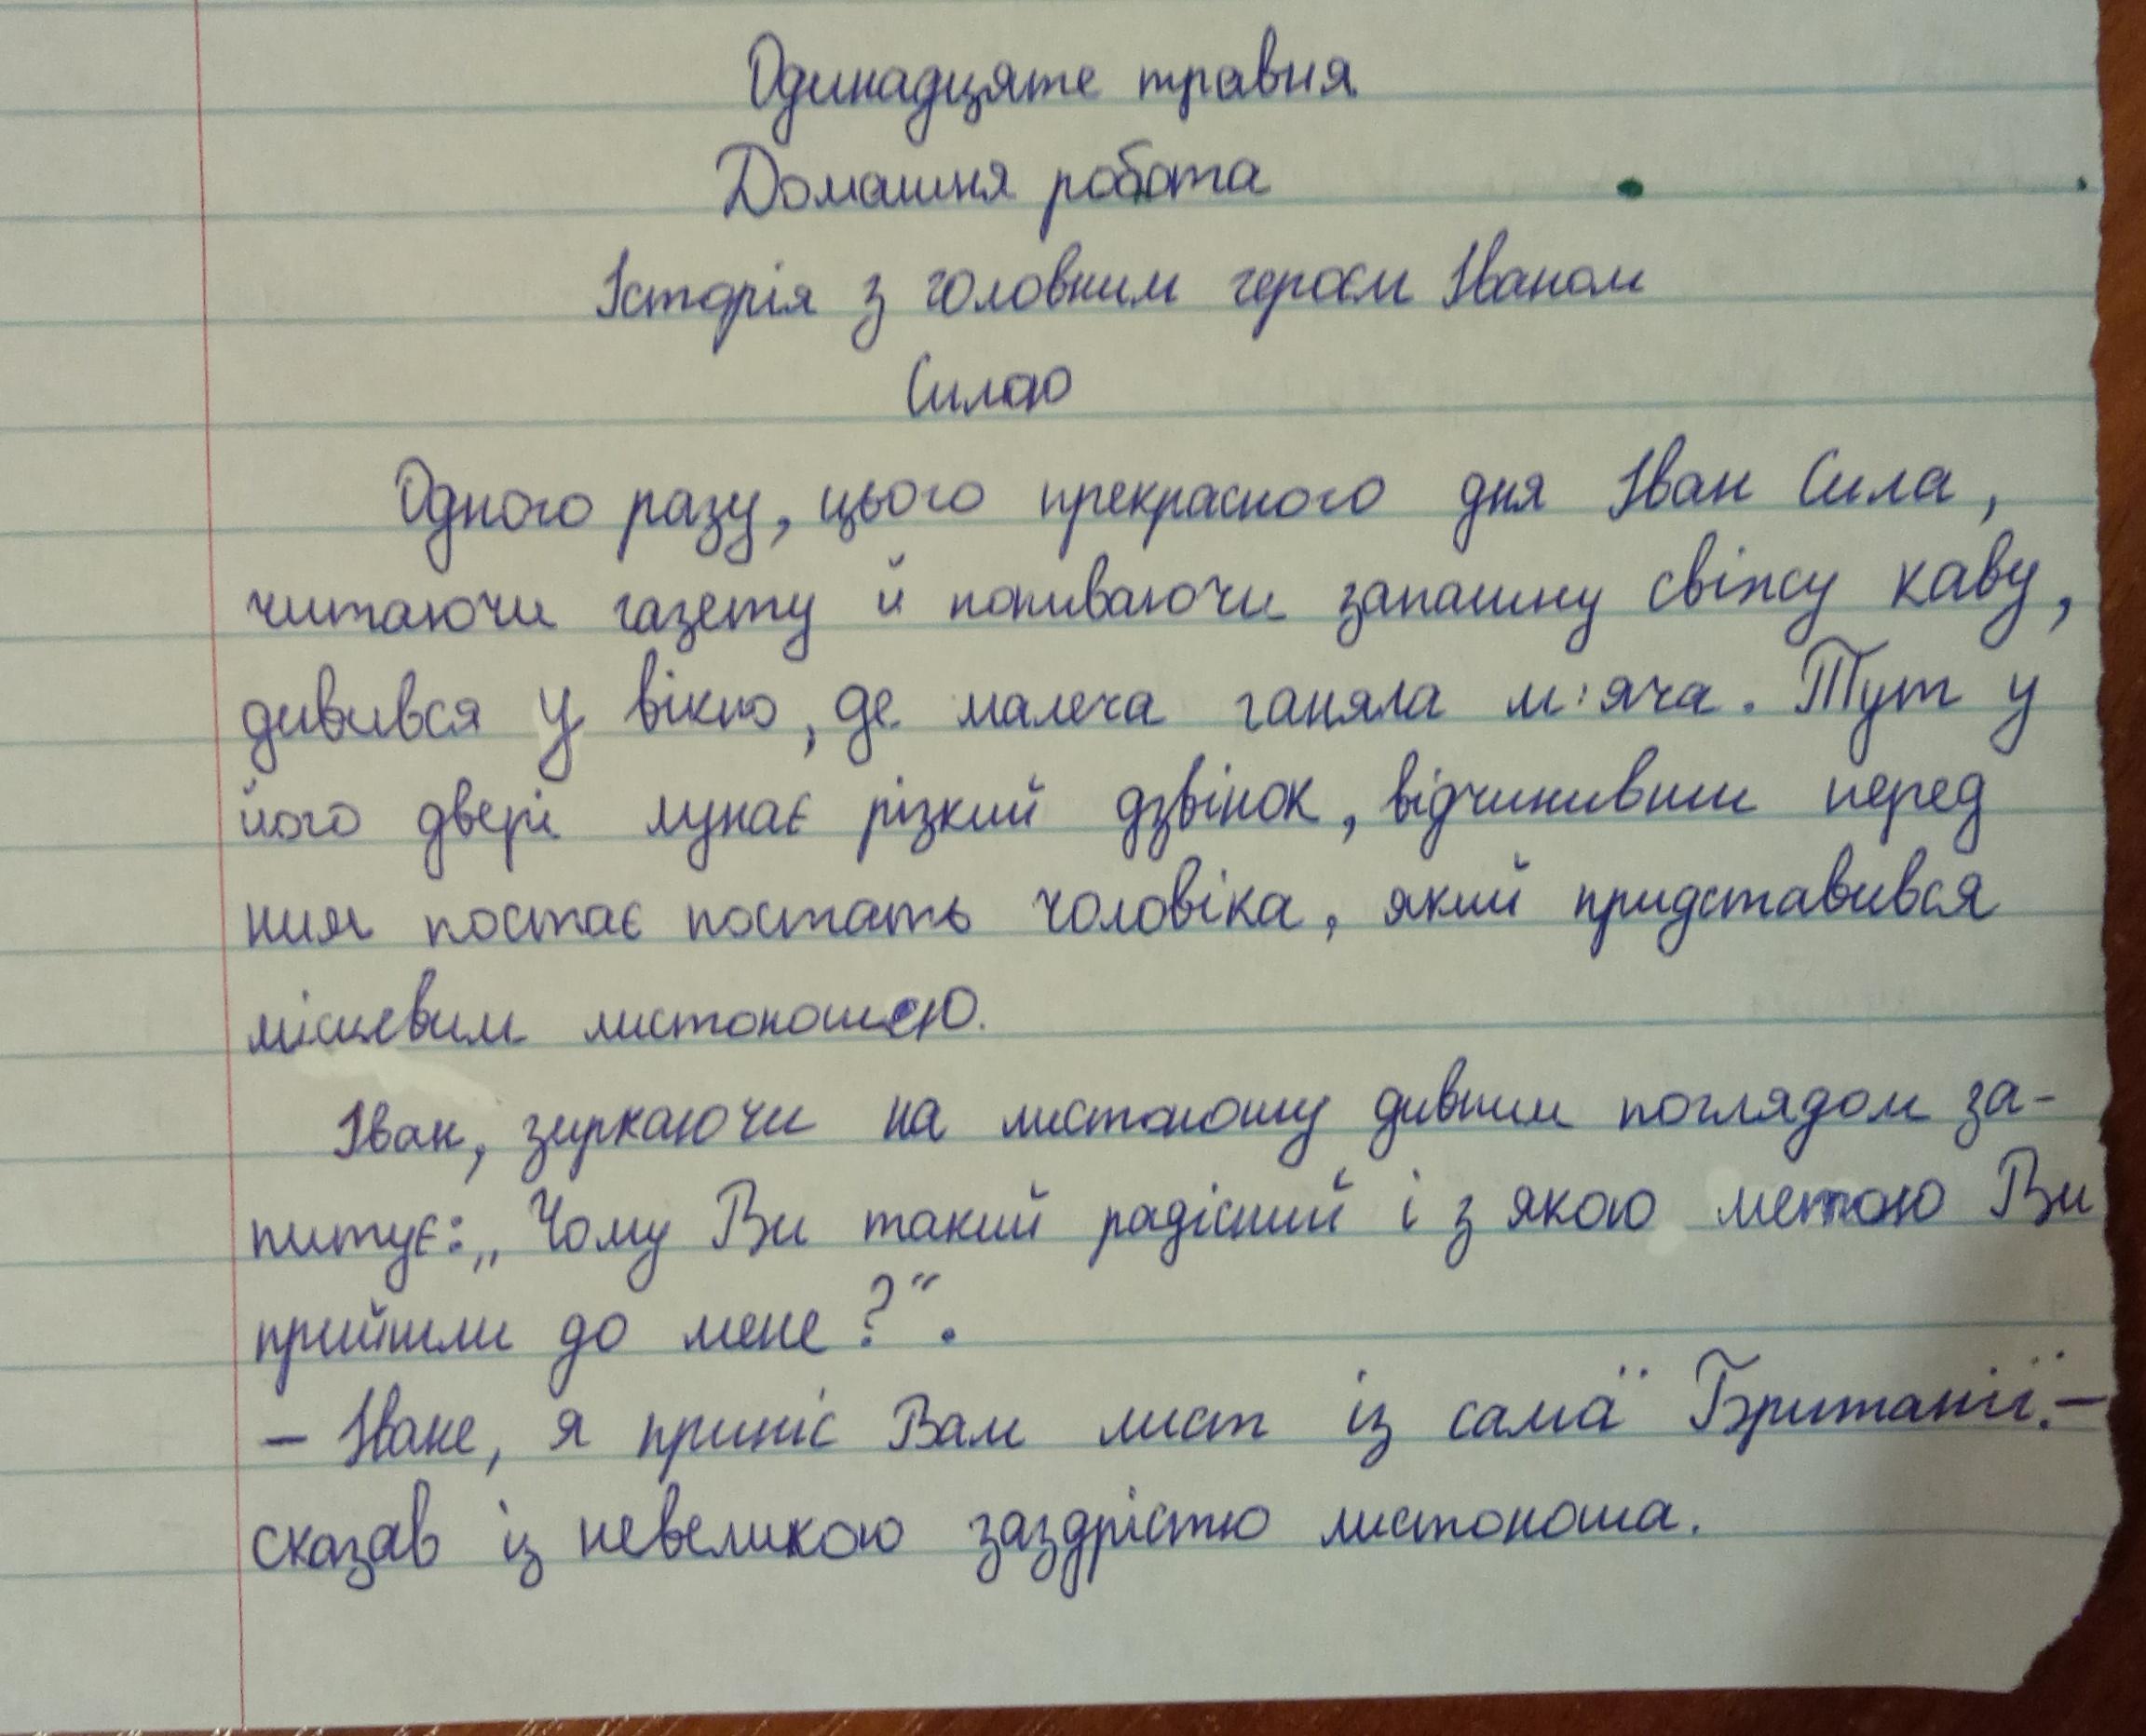 Одинадцяте травня
Домашня робота
Історія з головним героєм Іваном
Силою
Одного разу, цього прекрасного дня Іван Сила,
читаючи газету й попиваючи запашну свіжу каву,
дивився у вікно, де малеча ганяла м'яча. Тут у
його двері лунає різкий дзвінок, відчинивши перед
ним постає постать чоловіка, який придставився
місцевим листоношею.
Іван, зиркаючи на листоношу дивним поглядом за-
питує: „Чому Ви такий радісний і з якою метою Ви
прийшли до мене?“.
– Іване, я приніс Вам лист із самої Британії. –
сказав із невеликою заздрістю листоноша.